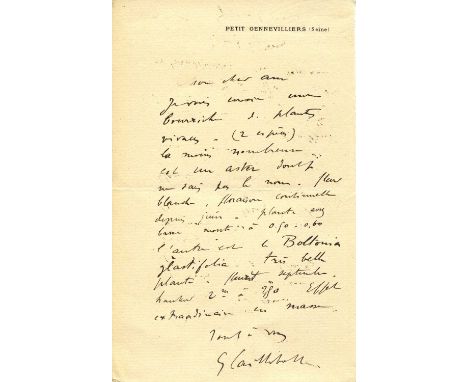 PETIT GENNEVILLIERS (Seine)
Mon cher ami
Je vous envoie une
bourriche de plantes
vivaces - (2 espèces)
la moins nombreuse
est un aster dont je
ne sais pas le nom. fleur
blanche, floraison continuelle
depuis juin - plante en
haut à 0.50 - 0.60
l'autre est le Boltonia
glastifolia très belle
plante - fleurit septembre
hauteur 2m à 2m50 Effet
extraordinaire en masse
Tout à vous
G Caillebotte